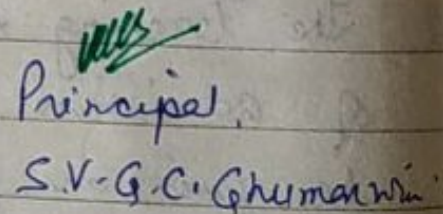 Principal,
S.V.G.C. Ghumarwin